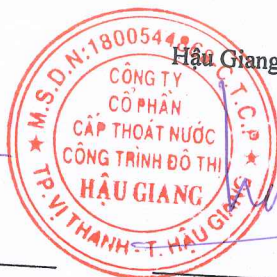 Hậu Giang
M.S.D.N:1800544 C.T.C.P
CÔNG TY
CỔ PHẦN
CẤP THOÁT NƯỚC
CÔNG TRÌNH ĐÔ THỊ
HẬU GIANG
TP.VỊ THANH - T. HẬU GIANG